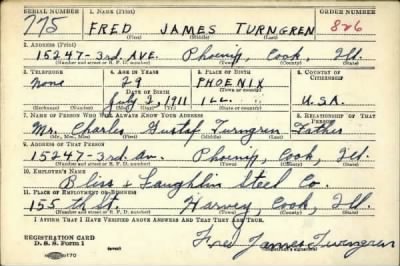 SERIAL NUMBER 1. NAME (Print) ORDER NUMBER
775 FRED JAMES TURNGREN 826
(First) (Middle) (Last)
2. ADDRESS (Print)
15247-3rd AVE. Phoenix, Cook, Ill.
(Number and street or R. F. D. number) (Town) (County) (State)
3. TELEPHONE 4. AGE IN YEARS 5. PLACE OF BIRTH 6. COUNTRY OF CITIZENSHIP
None 29 PHOENIX
DATE OF BIRTH (Town or county)
July 2, 1911 ILL. U.S.A.
(Exchange) (Number) (Mo.) (Day) (Yr.) (State or country)
7. NAME OF PERSON WHO WILL ALWAYS KNOW YOUR ADDRESS 8. RELATIONSHIP OF THAT PERSON
Mr. Charles Gustaf Turngren Father
(Mr., Mrs., Miss) (First) (Middle) (Last)
9. ADDRESS OF THAT PERSON
15247-3rd Av. Phoenix, Cook, Ill.
(Number and street or R. F. D. number) (Town) (County) (State)
10. EMPLOYER'S NAME
Bliss & Laughlin Steel Co.
11. PLACE OF EMPLOYMENT OR BUSINESS
155 th St. Harvey, Cook, Ill.
(Number and street or R. F. D. number) (Town) (County) (State)
I AFFIRM THAT I HAVE VERIFIED ABOVE ANSWERS AND THAT THEY ARE TRUE.
REGISTRATION CARD
D. S. S. Form 1
Fred James Turngren